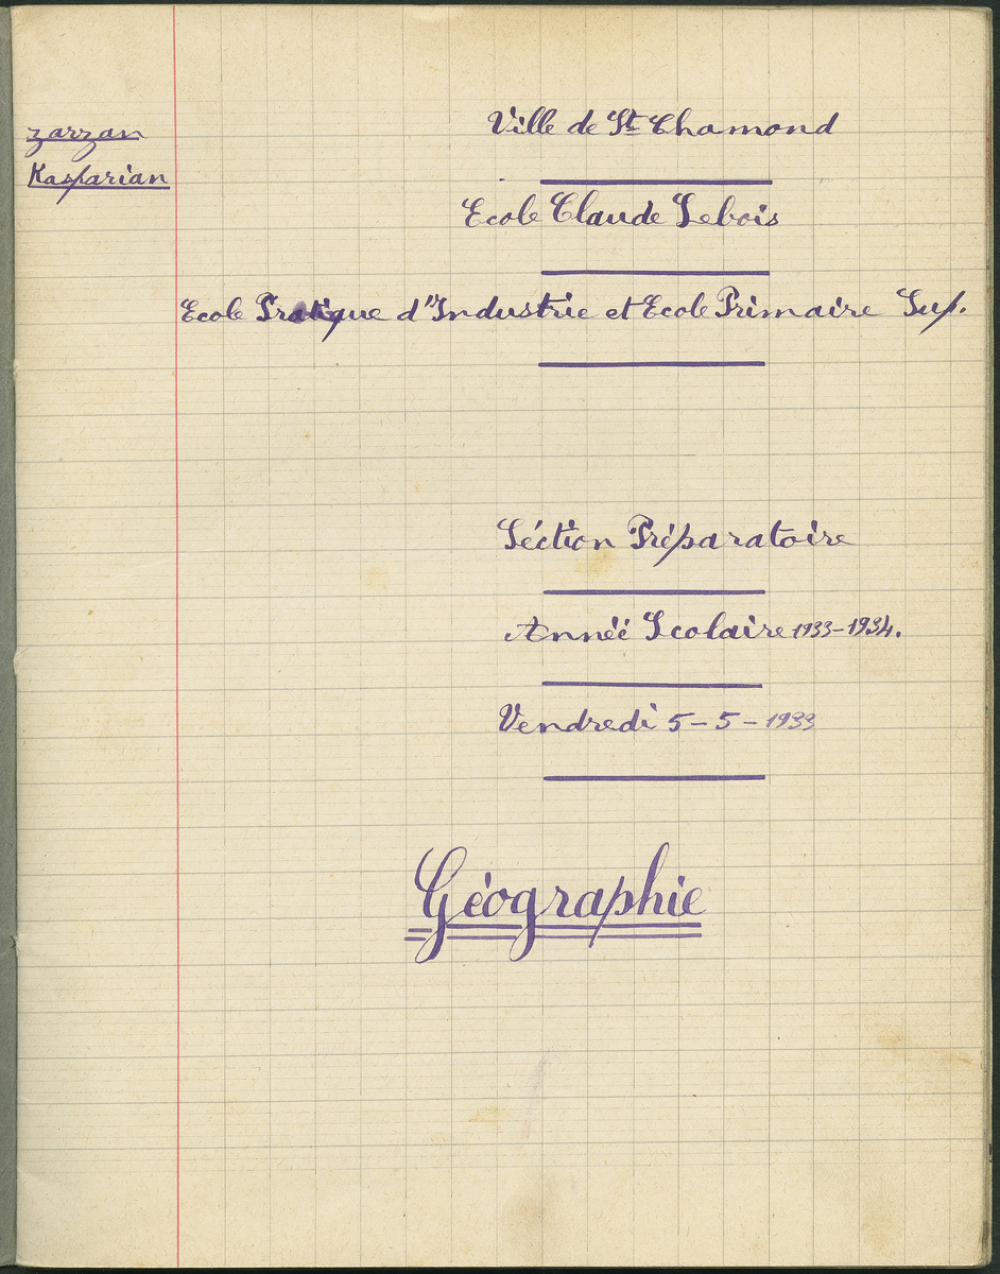 zarzan
Kasparian
Ville de St Chamond
Ecole Claude Lebois
Ecole Pratique d'Industrie et Ecole Primaire Sup.
Séction Préparatoire
Année Scolaire 1933-1934.
Vendredi 5-5-1933
Géographie